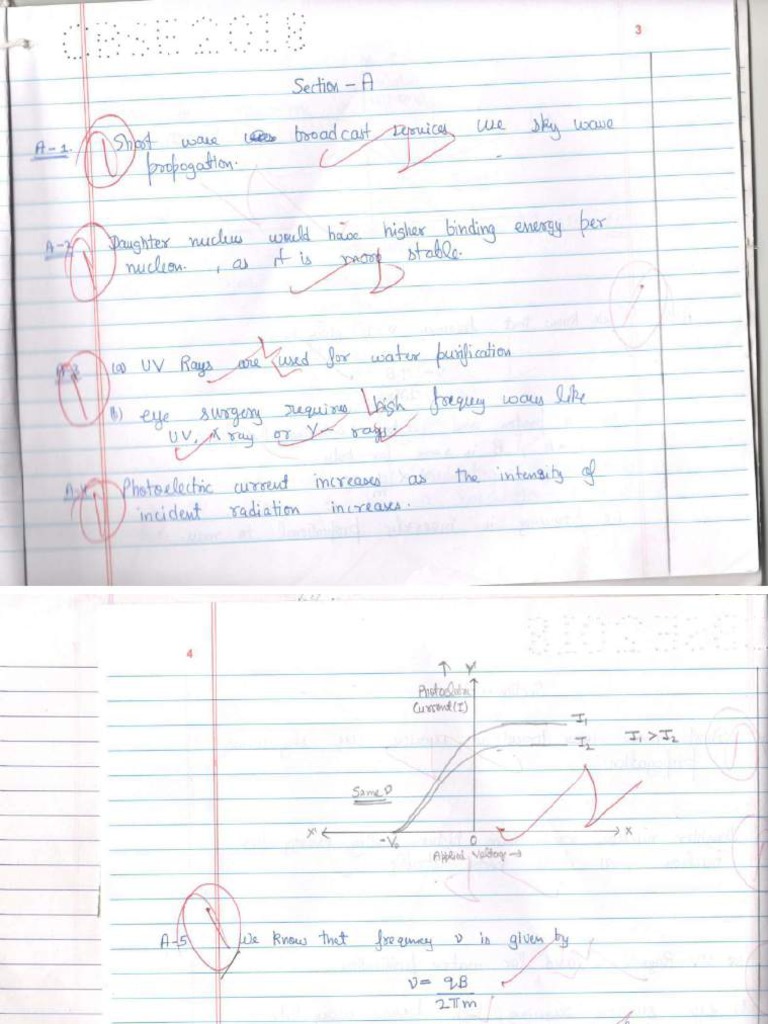 CBSE2018
3
Section - A
A-1. Short wave broadcast services use sky wave
propogation.
A-2 Daughter nucleus would have higher binding energy per
nucleon. , as it is more stable.
A-3 (a) UV Rays are used for water purification
(b) eye surgery requires high frequency waves like
UV, X ray or γ- rays.
A-4 Photoelectric current increases as the intensity of
incident radiation increases.
4
Y
Photoelectric
Current (I)
I1
I2
I1 > I2
Same ν
X'
-V0
0
X
Applied Voltage →
A-5 We know that frequency ν is given by
ν = qB
2πm